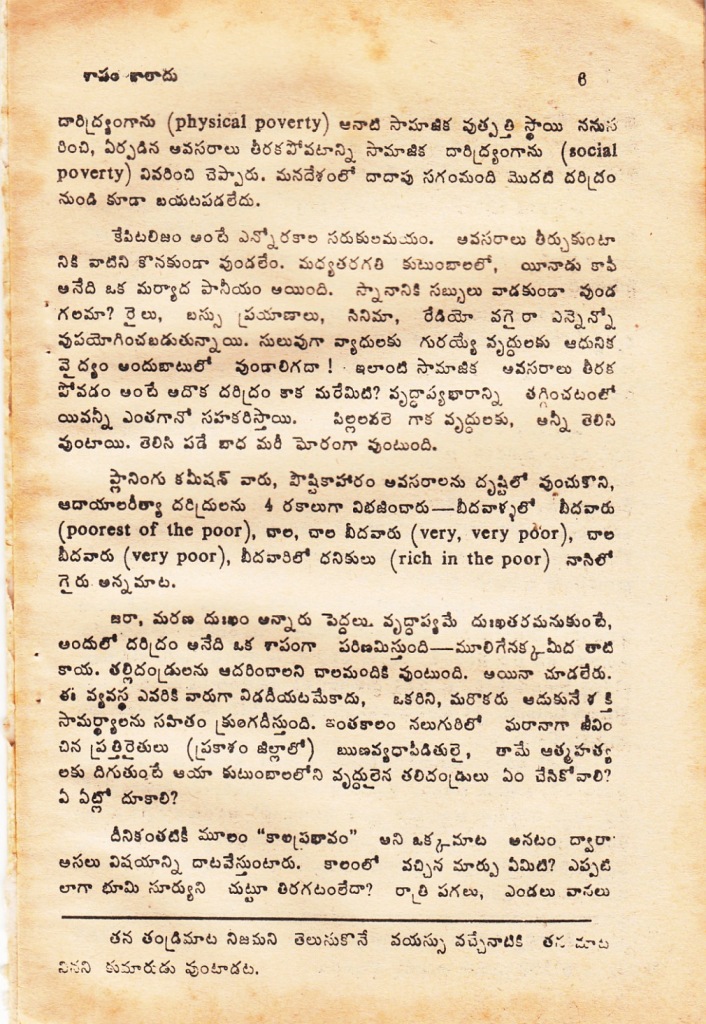 శాపం కారాదు 6
దారిద్ర్యంగాను (physical poverty) ఆనాటి సామాజిక వుత్పత్తి స్థాయి ననుస
రించి, ఏర్పడిన అవసరాలు తీరకపోవటాన్ని సామాజిక దారిద్ర్యంగాను (social
poverty) వివరించి చెప్పారు. మనదేశంలో దాదాపు సగంమంది మొదటి దరిద్రం
నుండి కూడా బయటపడలేదు.
కేపిటలిజం అంటే ఎన్నోరకాల సరుకులమయం. అవసరాలు తీర్చుకుంటా
నికి వాటిని కొనకుండా వుండలేం. మధ్యతరగతి కుటుంబాలలో, యీనాడు కాఫీ
అనేది ఒక మర్యాద పానీయం అయింది. స్నానానికి సబ్బులు వాడకుండా వుండ
గలమా? రైలు, బస్సు ప్రయాణాలు, సినిమా, రేడియో వగైరా ఎన్నెన్నో
వుపయోగించబడుతున్నాయి. సులువుగా వ్యాధులకు గురయ్యే వృద్ధులకు ఆధునిక
వైద్యం అందుబాటులో వుండాలిగదా ! ఇలాంటి సామాజిక అవసరాలు తీరక
పోవడం అంటే అదొక దరిద్రం కాక మరేమిటి? వృద్ధాప్యభారాన్ని తగ్గించటంలో
యివన్నీ ఎంతగానో సహకరిస్తాయి. పిల్లలవలె గాక వృద్ధులకు, అన్నీ తెలిసి
వుంటాయి. తెలిసి పడే బాధ మరీ ఘోరంగా వుంటుంది.
ప్లానింగు కమీషన్ వారు, పౌష్టికాహారం అవసరాలను దృష్టిలో వుంచుకొని,
ఆదాయాలరీత్యా దరిద్రులను 4 రకాలుగా విభజించారు—బీదవాళ్ళలో బీదవారు
(poorest of the poor), చాల, చాల బీదవారు (very, very poor), చాల
బీదవారు (very poor), బీదవారిలో ధనికులు (rich in the poor) నాసిలో
గైరు అన్నమాట.
జరా, మరణ దుఃఖం అన్నారు పెద్దలు. వృద్ధాప్యమే దుఃఖతరమనుకుంటే,
అందులో దరిద్రం అనేది ఒక శాపంగా పరిణమిస్తుంది—మూలిగేనక్కమీద తాటి
కాయ. తల్లిదండ్రులను ఆదరించాలని చాలమందికి వుంటుంది. అయినా చూడలేరు.
ఈ వ్యవస్థ ఎవరికి వారుగా విడదీయటమేకాదు, ఒకరిని, మరొకరు ఆదుకునే శక్తి
సామర్థ్యాలను సహితం క్రుంగదీస్తుంది. ఇంతకాలం నలుగురిలో ఘరానాగా జీవిం
చిన ప్రత్తిరైతులు (ప్రకాశం జిల్లాలో) ఋణవ్యధాపీడితులై, తామే ఆత్మహత్య
లకు దిగుతుంటే ఆయా కుటుంబాలలోని వృద్ధులైన తలిదండ్రులు ఏం చేసికోవాలి?
ఏ ఏట్లో దూకాలి?
దీనికంతటికీ మూలం “కాలప్రభావం” అని ఒక్కమాట అనటం ద్వారా
అసలు విషయాన్ని దాటవేస్తుంటారు. కాలంలో వచ్చిన మార్పు ఏమిటి? ఎప్పటి
లాగా భూమి సూర్యుని చుట్టూ తిరగటంలేదా? రాత్రి పగలు, ఎండలు వానలు
తన తండ్రిమాట నిజమని తెలుసుకొనే వయస్సు వచ్చేనాటికి తన మాట
వినని కుమారుడు వుంటాడట.